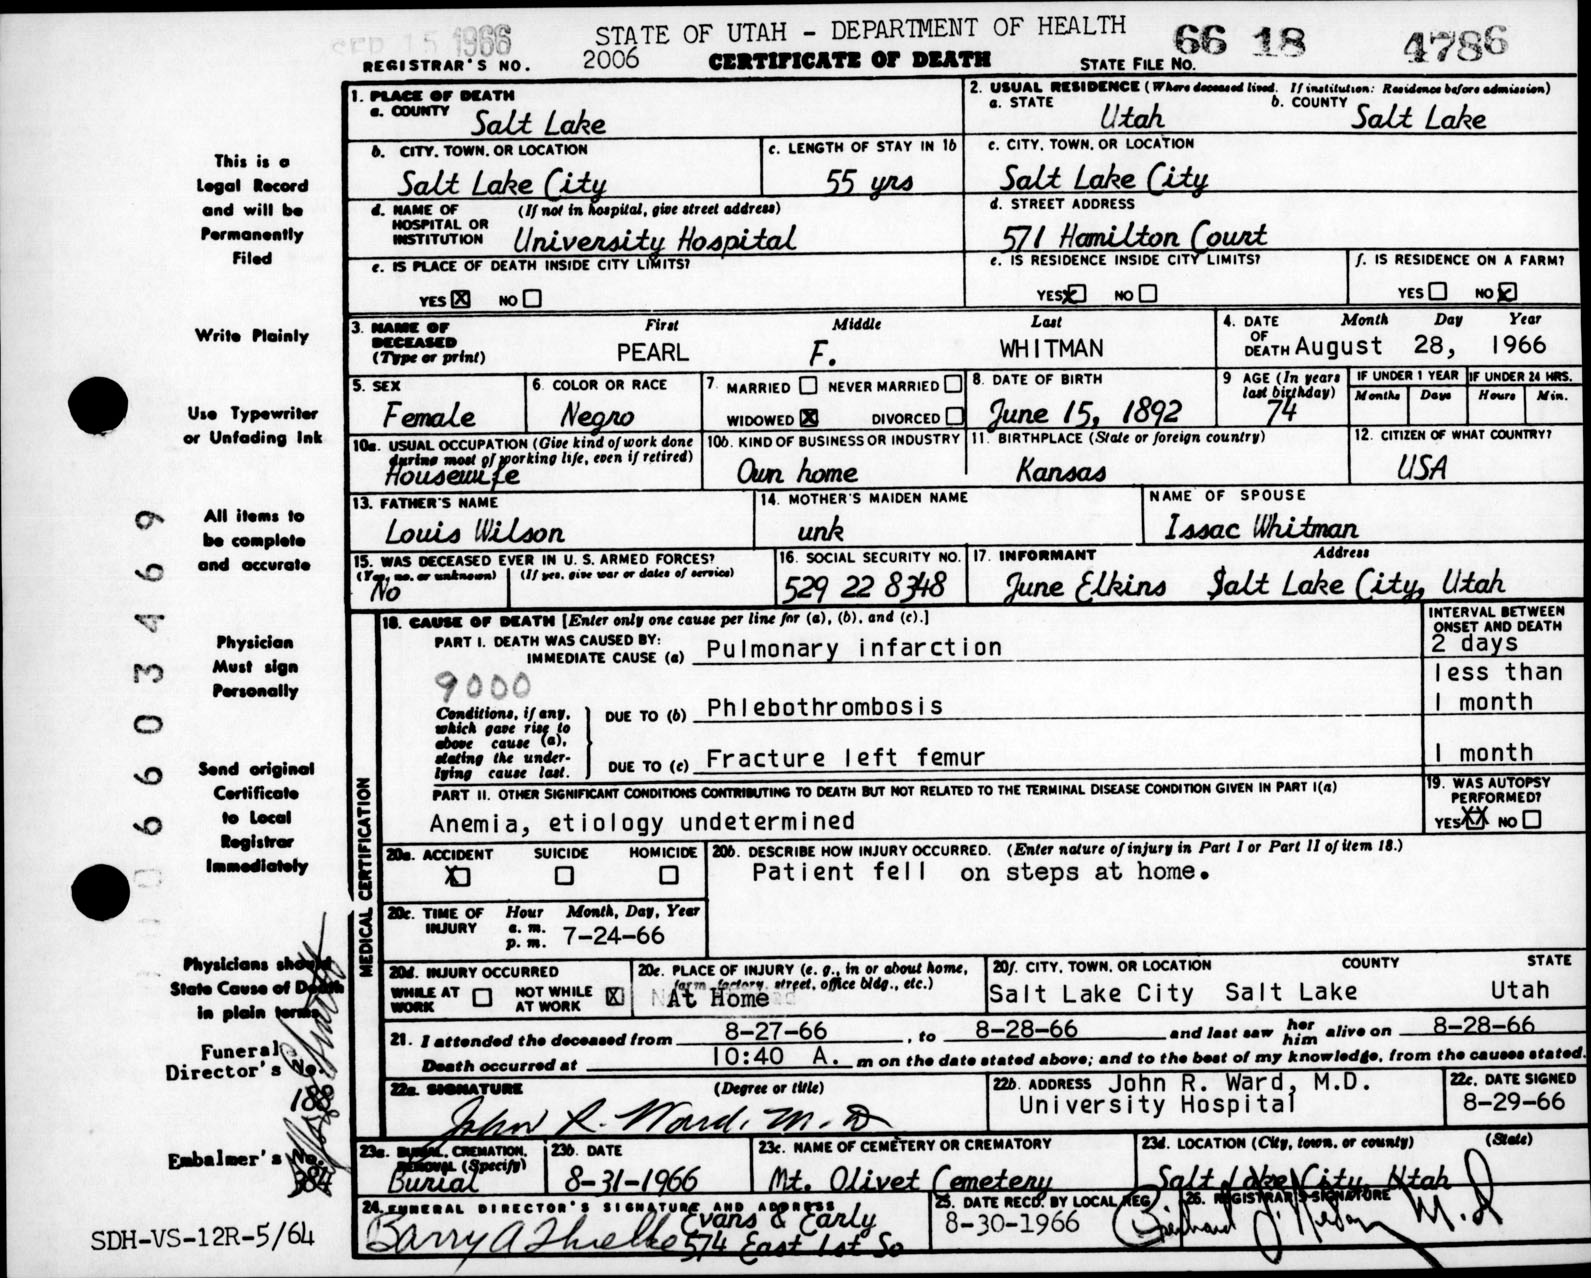 SEP 15 1966
STATE OF UTAH - DEPARTMENT OF HEALTH
66 18 4786
REGISTRAR'S NO. 2006 CERTIFICATE OF DEATH STATE FILE NO.
1. PLACE OF DEATH
a. COUNTY Salt Lake
2. USUAL RESIDENCE (Where deceased lived. If institution: Residence before admission)
a. STATE Utah b. COUNTY Salt Lake
b. CITY, TOWN, OR LOCATION Salt Lake City
c. LENGTH OF STAY IN 1b 55 yrs
c. CITY, TOWN, OR LOCATION Salt Lake City
d. NAME OF HOSPITAL OR INSTITUTION (If not in hospital, give street address) University Hospital
d. STREET ADDRESS 571 Hamilton Court
e. IS PLACE OF DEATH INSIDE CITY LIMITS? YES X NO
e. IS RESIDENCE INSIDE CITY LIMITS? YES X NO
f. IS RESIDENCE ON A FARM? YES NO X
3. NAME OF DECEASED (Type or print) First Middle Last
PEARL F. WHITMAN
4. DATE OF DEATH Month Day Year
August 28, 1966
5. SEX Female
6. COLOR OR RACE Negro
7. MARRIED NEVER MARRIED
WIDOWED X DIVORCED
8. DATE OF BIRTH June 15, 1892
9 AGE (In years last birthday) 74
IF UNDER 1 YEAR Months Days
IF UNDER 24 HRS. Hours Min.
10a. USUAL OCCUPATION (Give kind of work done during most of working life, even if retired) Housewife
10b. KIND OF BUSINESS OR INDUSTRY Own home
11. BIRTHPLACE (State or foreign country) Kansas
12. CITIZEN OF WHAT COUNTRY? USA
13. FATHER'S NAME Louis Wilson
14. MOTHER'S MAIDEN NAME unk
NAME OF SPOUSE Issac Whitman
15. WAS DECEASED EVER IN U. S. ARMED FORCES?
(Yes, no, or unknown) (If yes, give war or dates of service)
No
16. SOCIAL SECURITY NO. 529 22 8348
17. INFORMANT Address
June Elkins Salt Lake City, Utah
18. CAUSE OF DEATH [Enter only one cause per line for (a), (b), and (c).]
INTERVAL BETWEEN ONSET AND DEATH
PART I. DEATH WAS CAUSED BY:
IMMEDIATE CAUSE (a) Pulmonary infarction 2 days
9000
Conditions, if any, which gave rise to above cause (a), stating the underlying cause last.
DUE TO (b) Phlebothrombosis less than 1 month
DUE TO (c) Fracture left femur 1 month
PART II. OTHER SIGNIFICANT CONDITIONS CONTRIBUTING TO DEATH BUT NOT RELATED TO THE TERMINAL DISEASE CONDITION GIVEN IN PART I(a)
Anemia, etiology undetermined
19. WAS AUTOPSY PERFORMED? YES XX NO
20a. ACCIDENT SUICIDE HOMICIDE
X
20b. DESCRIBE HOW INJURY OCCURRED. (Enter nature of injury in Part I or Part II of item 18.)
Patient fell on steps at home.
20c. TIME OF INJURY Hour Month, Day, Year
a. m.
p. m. 7-24-66
MEDICAL CERTIFICATION
20d. INJURY OCCURRED
WHILE AT WORK NOT WHILE AT WORK X
20e. PLACE OF INJURY (e. g., in or about home, farm, factory, street, office bldg., etc.)
At Home
20f. CITY, TOWN, OR LOCATION COUNTY STATE
Salt Lake City Salt Lake Utah
21. I attended the deceased from 8-27-66, to 8-28-66 and last saw her him alive on 8-28-66
Death occurred at 10:40 A. m on the date stated above; and to the best of my knowledge, from the causes stated.
22a. SIGNATURE (Degree or title)
John R. Ward, M.D
22b. ADDRESS John R. Ward, M.D.
University Hospital
22c. DATE SIGNED 8-29-66
23a. BURIAL, CREMATION, REMOVAL (Specify) Burial
23b. DATE 8-31-1966
23c. NAME OF CEMETERY OR CREMATORY Mt. Olivet Cemetery
23d. LOCATION (City, town, or county) (State)
Salt Lake City, Utah
24. FUNERAL DIRECTOR'S SIGNATURE AND ADDRESS
Evans & Early
574 East 1st So
25. DATE RECD. BY LOCAL REG. 8-30-1966
26. REGISTRAR'S SIGNATURE
M.D
This is a
Legal Record
and will be
Permanently
Filed
Write Plainly
Use Typewriter
or Unfading Ink
All items to
be complete
and accurate
Physician
Must sign
Personally
Send original
Certificate
to Local
Registrar
Immediately
Physicians should
State Cause of Death
in plain terms
Funeral
Director's No.
188
Embalmer's No.
384
6603469
SDH-VS-12R-5/64